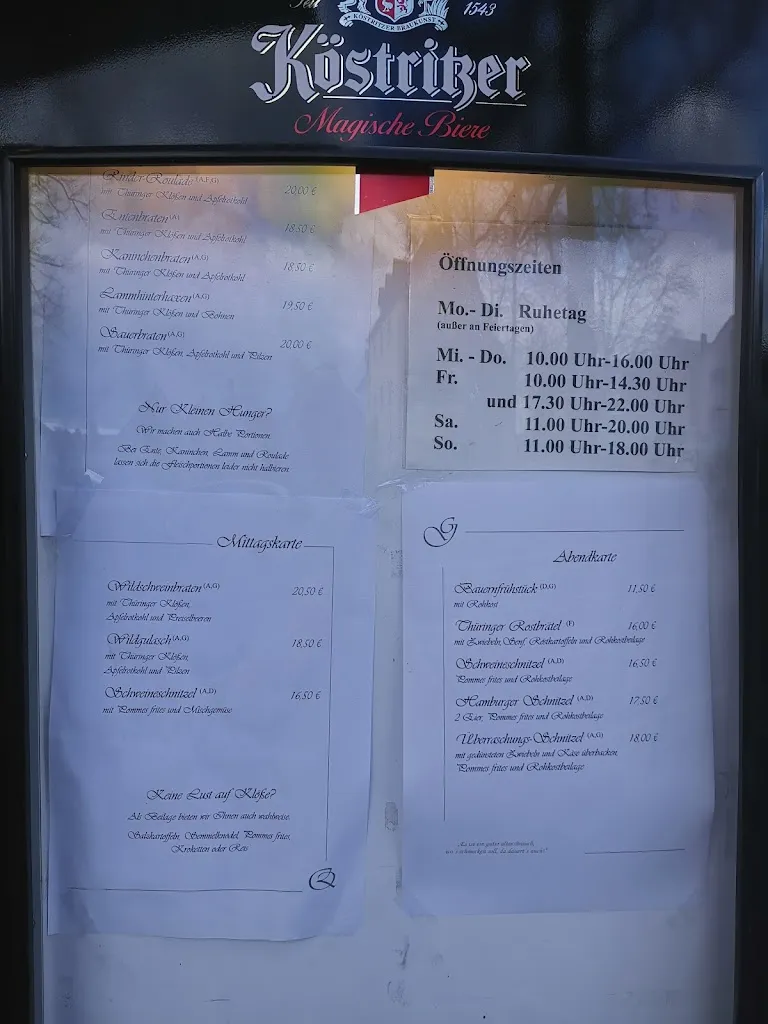 Seit 1543
KÖSTRITZER BRAUKUNST
Köstritzer
Magische Biere
Rinder-Roulade (A,F,G) 20,00 €
mit Thüringer Klößen und Apfelrotkohl
Entenbraten (A) 18,50 €
mit Thüringer Klößen und Apfelrotkohl
Kaninchenbraten (A,G) 18,50 €
mit Thüringer Klößen und Apfelrotkohl
Lammhinterhaxen (A,G) 19,50 €
mit Thüringer Klößen und Bohnen
Sauerbraten (A,G) 20,00 €
mit Thüringer Klößen, Apfelrotkohl und Pilzen
Nur Kleinen Hunger?
Wir machen auch Halbe Portionen.
Bei Ente, Kaninchen, Lamm und Roulade
lassen sich die Fleischportionen leider nicht halbieren.
Öffnungszeiten
Mo.- Di. Ruhetag
(außer an Feiertagen)
Mi. - Do. 10.00 Uhr-16.00 Uhr
Fr. 10.00 Uhr-14.30 Uhr
und 17.30 Uhr-22.00 Uhr
Sa. 11.00 Uhr-20.00 Uhr
So. 11.00 Uhr-18.00 Uhr
Mittagskarte
Wildschweinbraten (A,G) 20,50 €
mit Thüringer Klößen,
Apfelrotkohl und Preiselbeeren
Wildgulasch (A,G) 18,50 €
mit Thüringer Klößen,
Apfelrotkohl und Pilzen
Schweineschnitzel (A,D) 16,50 €
mit Pommes frites und Mischgemüse
Keine Lust auf Klöße?
Als Beilage bieten wir Ihnen auch wahlweise,
Salzkartoffeln, Semmelknödel, Pommes frites,
Kroketten oder Reis
Abendkarte
Bauernfrühstück (D,G) 11,50 €
mit Rohkost
Thüringer Rostbrätel (F) 16,00 €
mit Zwiebeln, Senf, Röstkartoffeln und Rohkostbeilage
Schweineschnitzel (A,D) 16,50 €
Pommes frites und Rohkostbeilage
Hamburger Schnitzel (A,D) 17,50 €
2 Eier, Pommes frites und Rohkostbeilage
Überraschungs-Schnitzel (A,G) 18,00 €
mit gedünsteten Zwiebeln und Käse überbacken,
Pommes frites und Rohkostbeilage